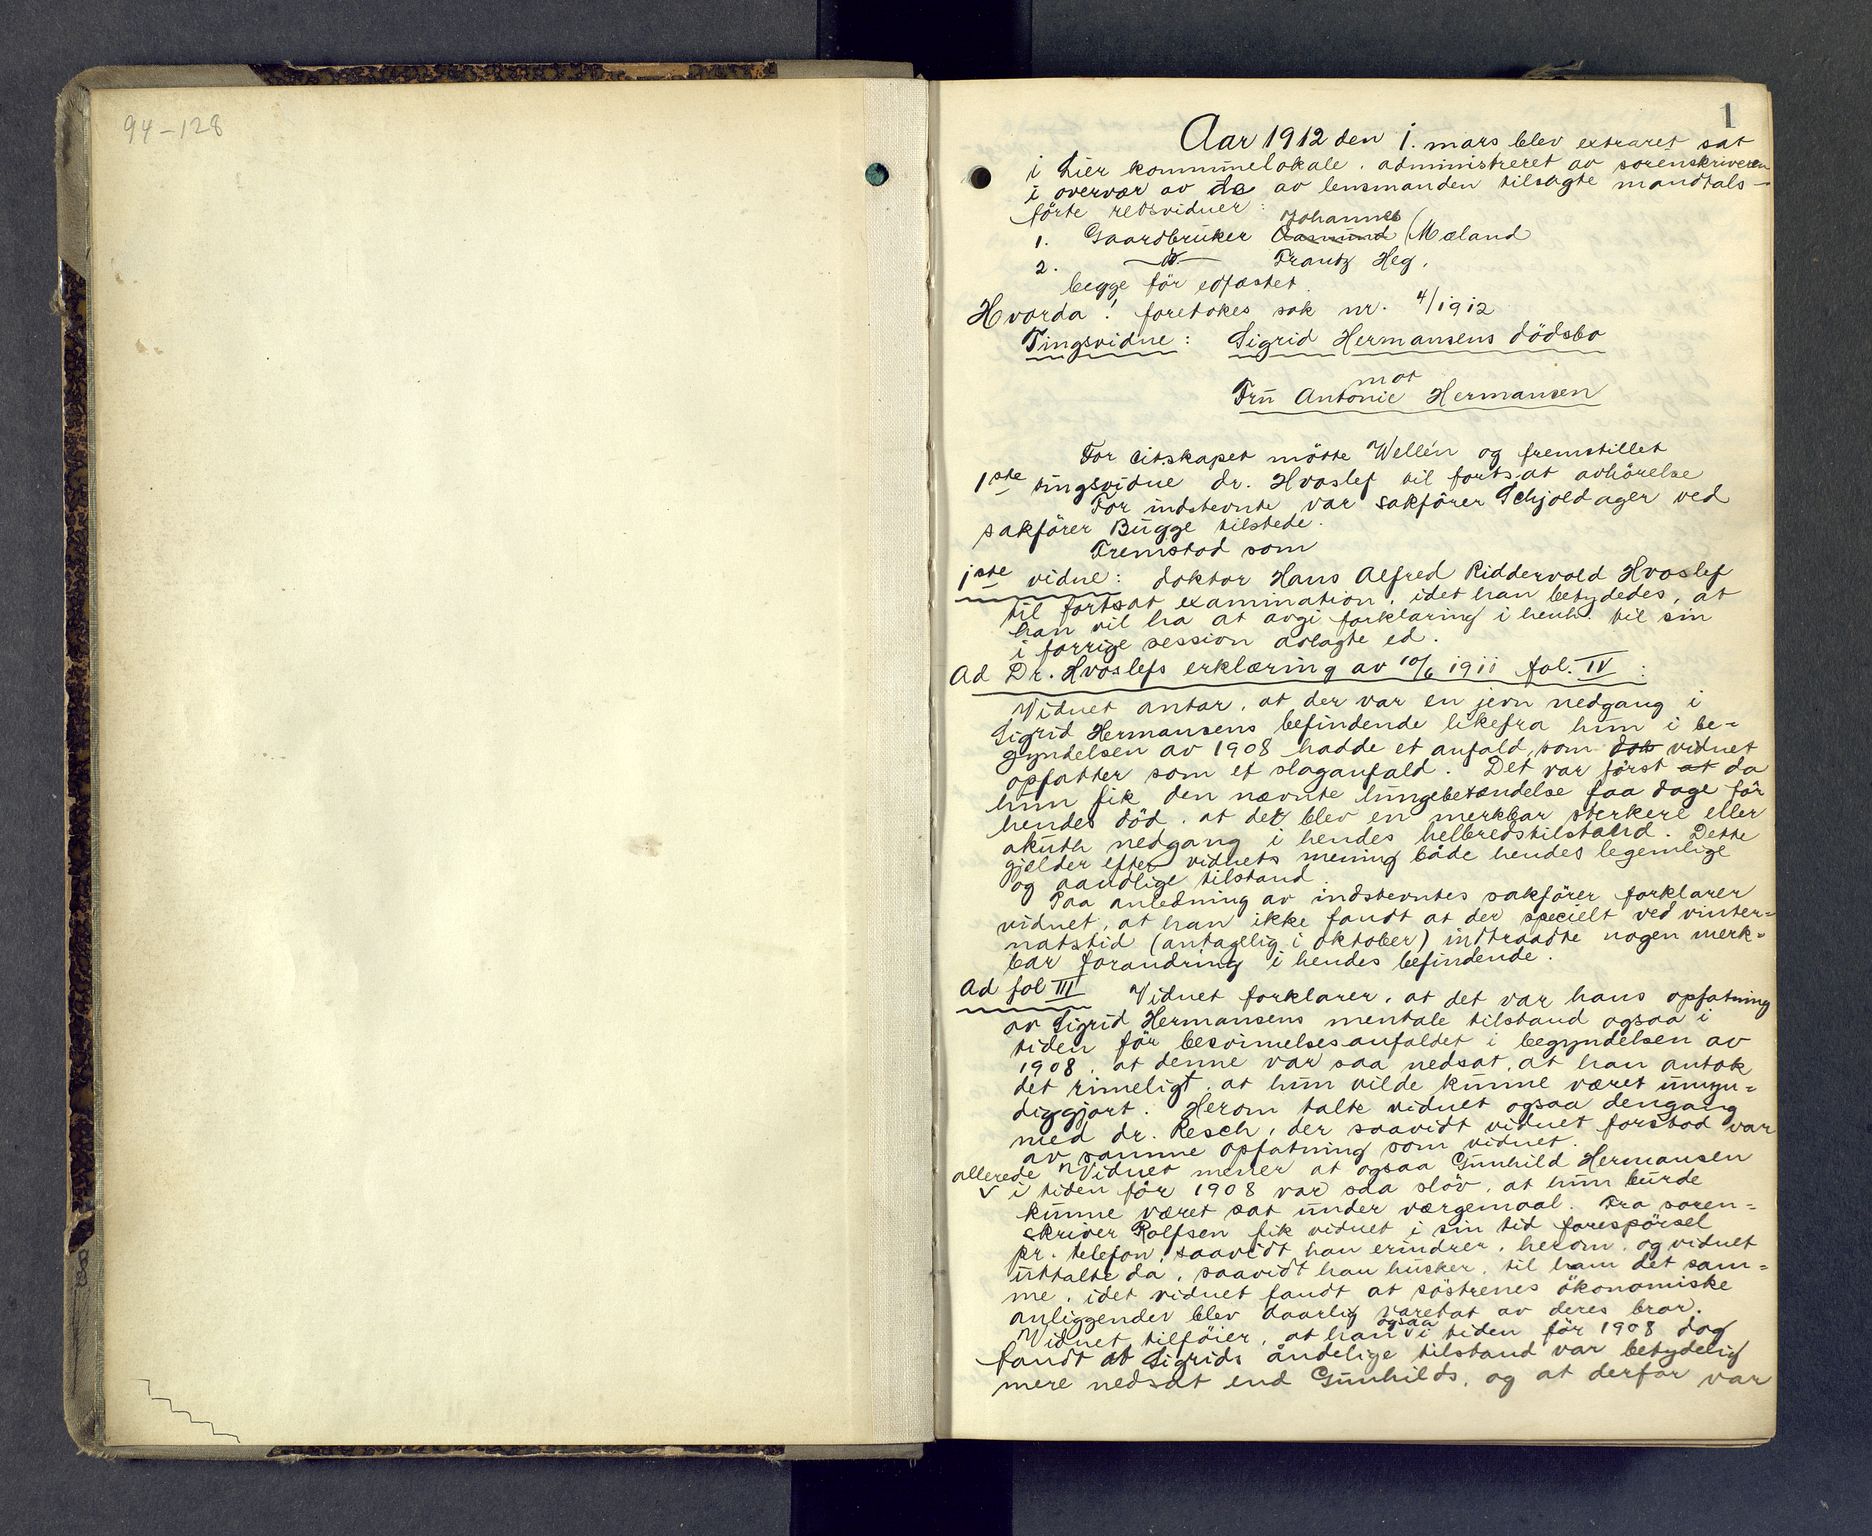 94-128
1
Aar 1912 den 1. mars blev extraret sat
i Lier kommunelokale, administreret av sorenskriveren
i overvær av de av lensmanden tilsagte mandtals-
førte retsvidner:
1. Gaardbruker Aasmund Johannes Mæland
2. —do— Frantz Heg.
begge før edfæstet.
Hvorda! foretokes sak nr. 4/1912
Tingsvidne: Sigrid Hermansens dödsbo
mot
Fru Antonie Hermansen
For citskapet mötte Wellén og fremstillet
1ste tingsvidne dr. Hvoslef til fortsat avhörelse
For indstevnte var sakförer Schjoldager ved
sakförer Bugge tilstede.
Fremstod som
1ste vidne: doktor Hans Alfred Riddervold Hvoslef
til fortsat examination, idet han betydedes, at
han vil ha at avgi forklaring i henh. til sin
i forrige session avlagte ed.
Ad Dr. Hvoslefs erklæring av 10/6 1911 fol. IV:
Vidnet antar, at der var en jevn nedgang i
Sigrid Hermansens befindende likefra hun i be-
gyndelsen av 1908 hadde et anfald, som dok vidnet
opfatter som et slaganfald. Det var först at da
hun fik den nævnte lungebetændelse faa dage för
hendes död, at det blev en merkbar sterkere eller
akuth nedgang i hendes helbredstilstand. Dette
gjælder efter vidnets mening både hendes legemlige
og aandlige tilstand.
Paa anledning av indstevntes sakförer forklarer
vidnet, at han ikke fandt at der specielt ved vinter-
natstid (antagelig i oktober) indtraadte nogen merk-
bar forandring i hendes befindende.
Ad fol III Vidnet forklarer, at det var hans opfatning
av Sigrid Hermansens mentale tilstand ogsaa i
tiden för besvimelsesanfaldet i begyndelsen av
1908, at denne var saa nedsat, at han antok
det rimeligt, at hun vilde kunne været umyn-
diggjort. Herom talte vidnet ogsaa dengang
med dr. Resch, der saavidt vidnet forstod var
av samme opfatning som vidnet.
Vidnet mener at ogsaa Gunhild Hermansen
allerede i tiden för 1908 var saa slöv, at hun burde
kunne været sat under værgemaal. Fra soren-
skriver Rolfsen fik vidnet i sin tid forespörsel
pr. telefon, saavidt han erindrer, herom, og vidnet
uttalte da, saavidt han husker, til ham det sam-
me, idet vidnet fandt at söstrenes ökonomiske
anliggender blev daarlig varetat av deres bror.
Vidnet tilföier, at han ogsaa i tiden för 1908 dog
fandt at Sigrids åndelige tilstand var betydelig
mere nedsat end Gunhilds, og at derfor var